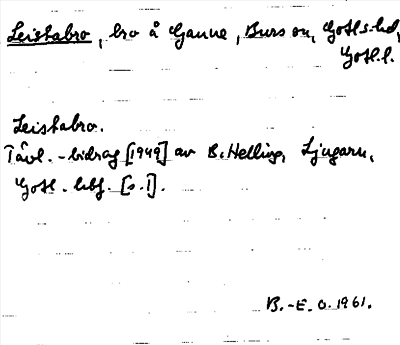 Leistabro, bro å Ganne, Burs sn, Gotl.s.hd,
Gotl.l.
Leistabro.
Tävl.-bidrag [1949] av B. Helling, Ljugarn,
Gotl. hbf. [s.1].
B.-E. O. 1961.